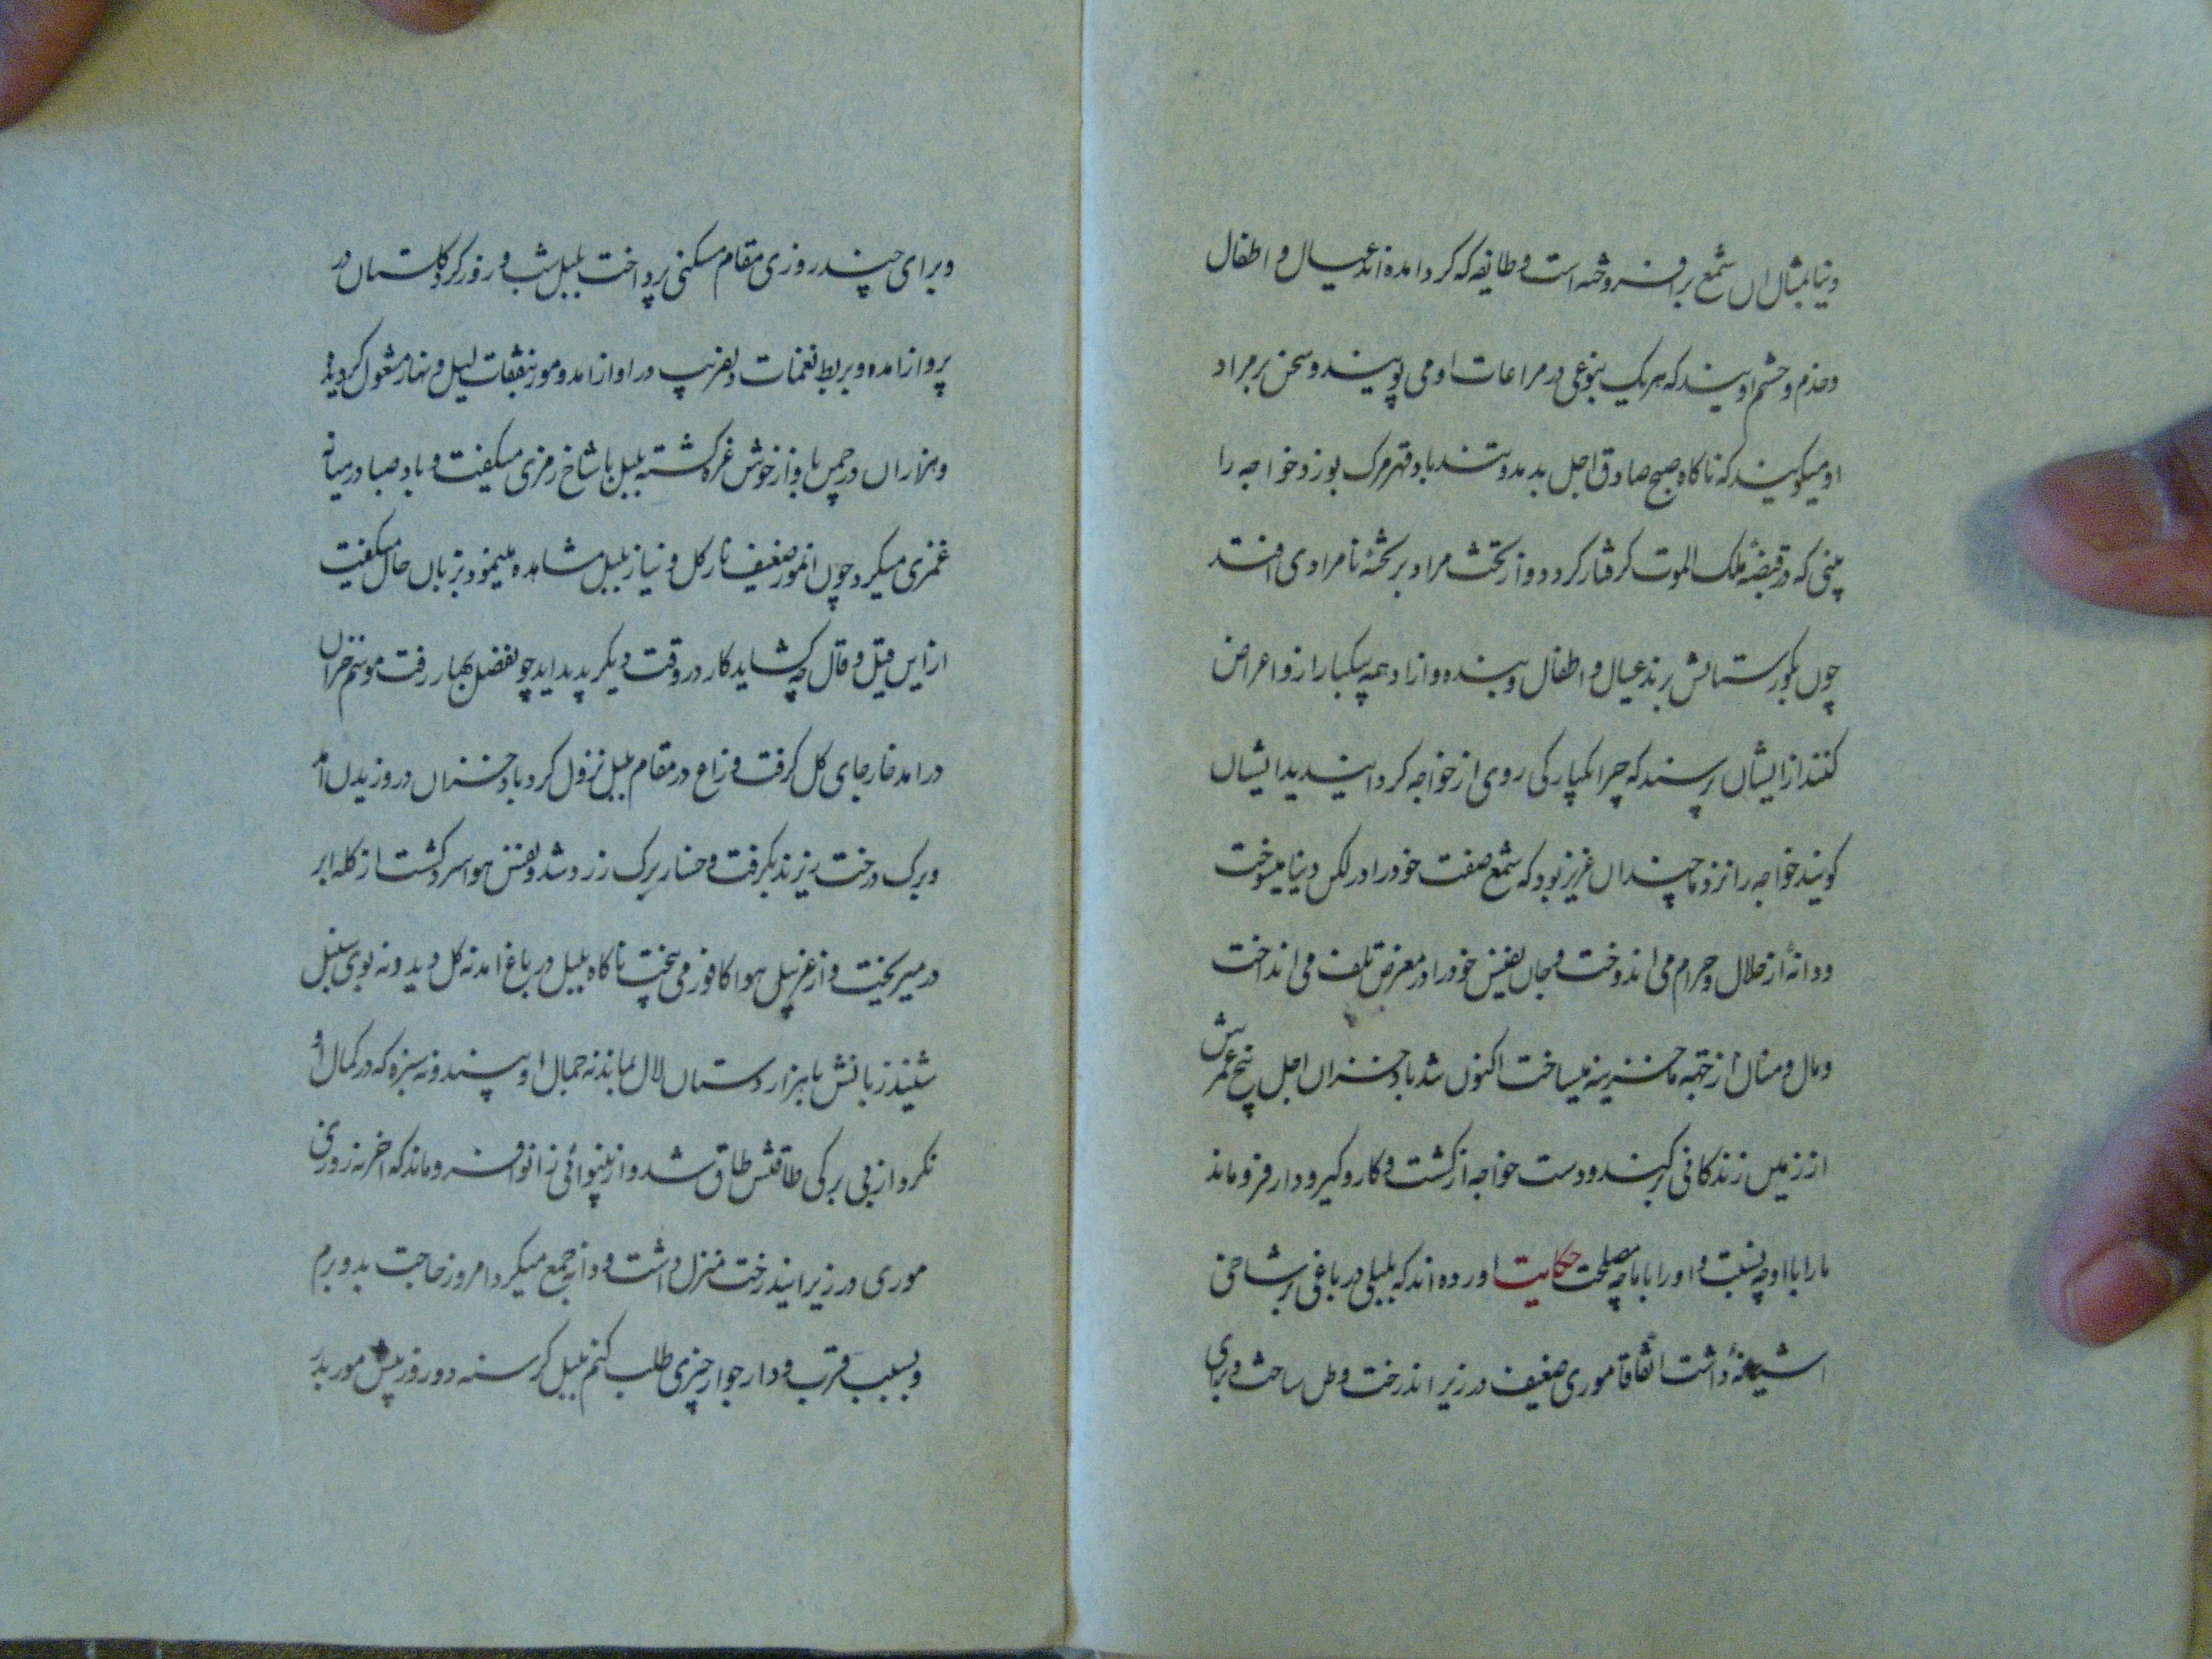 دنیا بمثال ان شمع برافروخته است و طایفه که کرد امده اند عیال و اطفال
و خدم و حشم اویند که هریک بنوعی در مراعات او می پویند و سخن بر مراد
او میکویند که ناکاه صبح صادق اجل بدمد و تند باد قهر مرک بوزد و خواجه را
بینی که در قبضهٔ ملک الموت کرفتار کردد و از تخت مراد بر تختهٔ نامرادی افتد
چون بکورستانش برند عیال و اطفال و بنده و ازاد همه بیکبار ازو اعراض
کنند از ایشان پرسند که چرا بیکبارکی روی از خواجه کردانیدید ایشان
کویند خواجه را نزد ما چندان عزیز بود که شمع صفت خود را در لکن دنیا میسوخت
و دانهٔ از حلال و حرام می اندوخت و جان نفیس خود را در معرض تلف می انداخت
و مال و منال از جهة ما خزینه میساخت اکنون تند باد خزان اجل بیخ عمرش
از زمین زندکانی برکند و دست خواجه از کشت و کار و کیر و دار فرو ماند
ما را با او چه نسبت و او را با ما چه مصلحت حکایت اورده اند که بلبلی در باغی بر شاخی
اشیانهٔ داشت اتفاقا موری ضعیف در زیر اندرخت وطن ساخت و برای
و برای چند روزی مقام مسکنی پرداخت بلبل شب و روز کرد کلستان در
پرواز امده و بربط نغمات دلفریب در اواز امد و مور بنفقات لیل و نهار مشغول کردید
و هزاران در چمن باواز خوش غره کشته بلبل با شاخ رمزی میکفت و باد صبا در میانه
غمزی میکرد چون انمور ضعیف ناز کل و نیاز بلبل مشاهده مینمود بزبان حال میکفت
از این قیل و قال چه کشاید کار در وقت دیکر پدید اید چو فصل بهار رفت موسم خزان
در امد خار جای کل کرفت و زاغ در مقام بلبل نزول کرد باد خزان در وزیدن امد
و برک درخت ریزیدن کرفت و رخسار برک زرد شد و نفس هوا سرد کشت از کله ابر
در میریخت و از غربیل هوا کافور می بیخت ناکاه بلبل در باغ امد نه کل دید و نه بوی سنبل
شنید زبانش با هزار دستان لال بماند نه جمال او بیند و نه سبزه که در کمال او
نکرد از بی برکی طاقتش طاق شد و از بینوائی زانو فرو ماند که اخر نه روزی
موری در زیر ایندرخت منزل داشت و دانه جمع میکرد امروز حاجت بدو برم
و بسبب قرب و دار جوار چیزی طلب کنم بلبل کرسنه دو روز پیش مور بدر